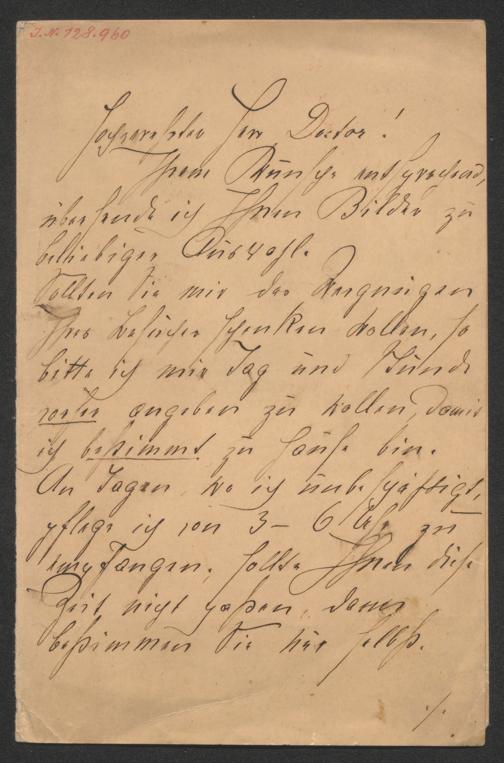 I.N. 128.960
Hochverehrter Herr Doctor!
Ihrem Wunsche entsprechend,
übersende ich Ihnen Bilder zu
beliebiger Auswahl.
Sollten Sie mir das Vergnügen
Ihres Besuches schenken wollen, so
bitte ich mir Tag und Stunde
vorher angeben zu wollen, damit
ich bestimmt zu Hause bin.
An Tagen, wo ich unbeschäftigt,
pflege ich von 3 – 6 Uhr zu
empfangen, sollte Ihnen diese
Zeit nicht passen, dann
bestimmen Sie nur selbst.
./.